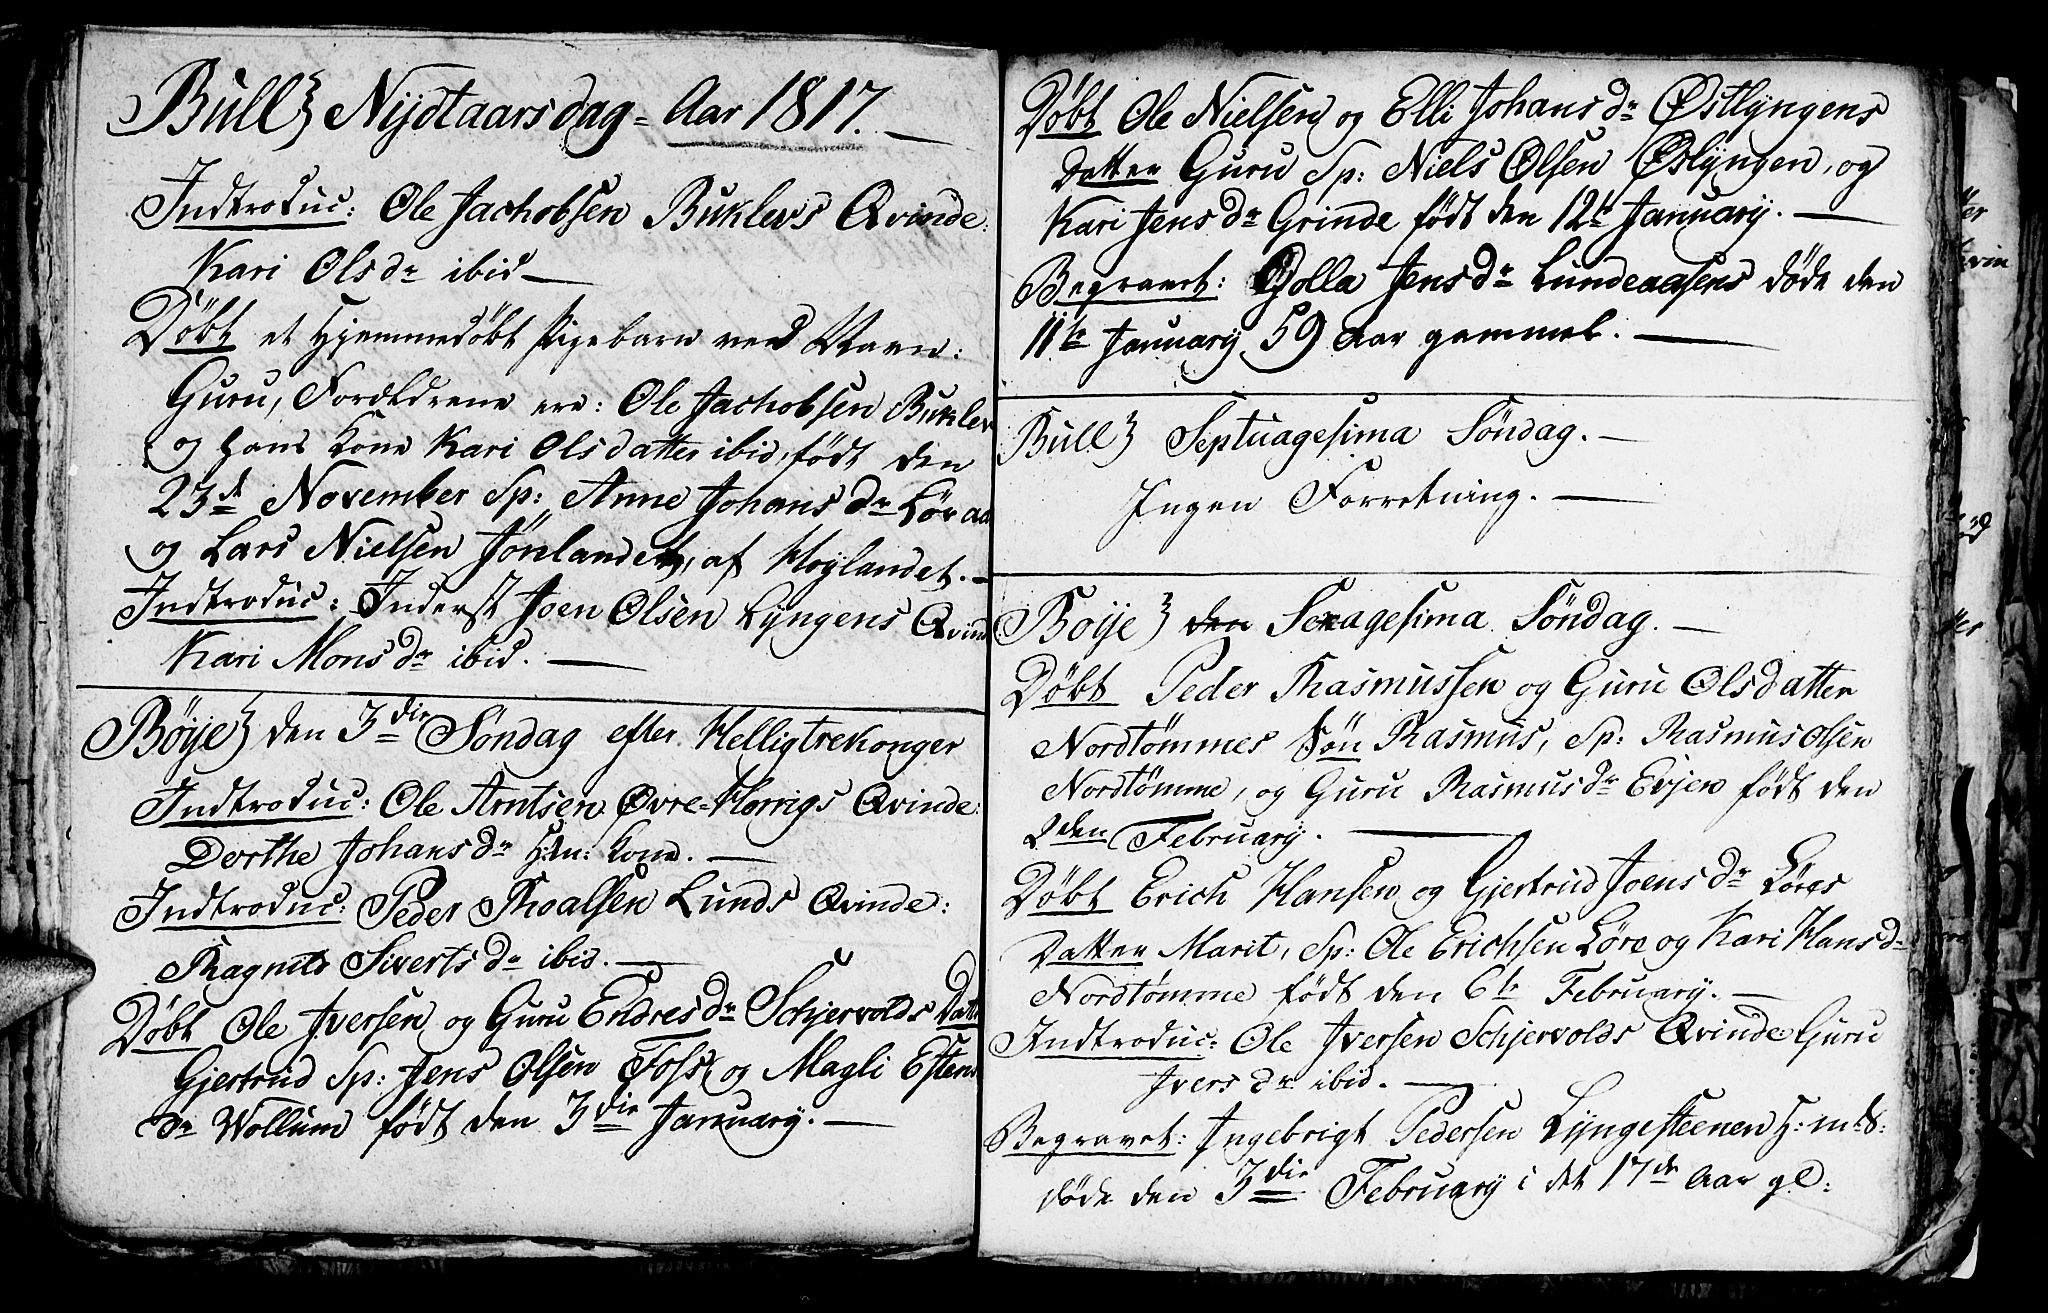 Bull} Nydtaarsdag - Aar 1817. —
Indtroduc: Ole Jachobsen Buklevs Qvinde:
Kari Olsdr ibid —
Døbt et Hjemmedøbt Pigebarn ved Navn:
Guru, Forældrene ere: Ole Jachobsen Buklev
og hans Kone Kari Olsdatter ibid, født den
23d November Sp: Anne Johansdr Løraa
og Lars Nielsen Jørlandet, af Høylandet. —
Indtroduc: Inderst Joen Olsen Lyngens Qvind
Kari Monsdr ibid. —
Bøije} den 3die Søndag efter Helligtrekonger
Indtroduc: Ole Arntsen Øvre-Horrigs Qvinde:
Dorthe Johansdr H:n: Kone. —
Indtroduc: Peder Thoalsen Lunds Qvinde:
Ragnild Sivertsdr ibid. —
Døbt Ole Iversen og Guru Endresdr Schjervolds Datt
Gjertrud Sp: Jens Olsen Foss og Magli Estens
dr Wollum født den 3die January. —
Døbt Ole Nielsen og Elli Johansdr Østlyngens
Datter Guru Sp: Niels Olsen Østlyngen, og
Kari Jensdr Grinde født den 12te January. —
Begravet: Golla Jensdr Lundeaasens døde den
11te January 59 Aar gammel. —
Bull} Septuagesima Søndag. —
Ingen Forretning. —
Bøije} den Sexagesima Søndag. —
Døbt Peder Rasmussen og Guru Olsdatter
Nordtømmes Søn Rasmus, Sp: Rasmus Olsen
Nordtømme, og Guru Rasmusdr Evjen født den
2den February. —
Døbt Erich Hansen og Gjertrud Joensdr Løres
Datter Marit, Sp: Ole Erichsen Løre og Kari Hansdr
Nordtømme født den 6te February. —
Indtroduc: Ole Iversen Schjervolds Qvinde: Guru
Iversdr ibid. —
Begravet: Ingebrigt Pedersen Lyngesteenen H:mds:
døde den 3die February i det 17de Aar gl: